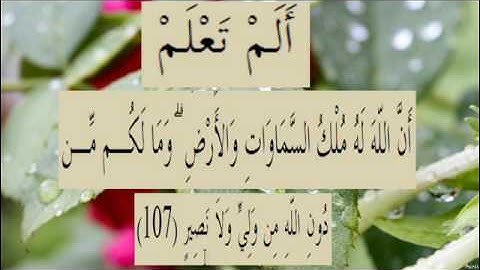 أَلَمْ تَعْلَمْ
أَنَّ اللّهَ لَهُ مُلْكُ السَّمَاوَاتِ وَالأَرْضِ ۗ وَمَا لَكُم مِّن
دُونِ اللّهِ مِن وَلِيٍّ وَلاَ نَصِيرٍ (107)